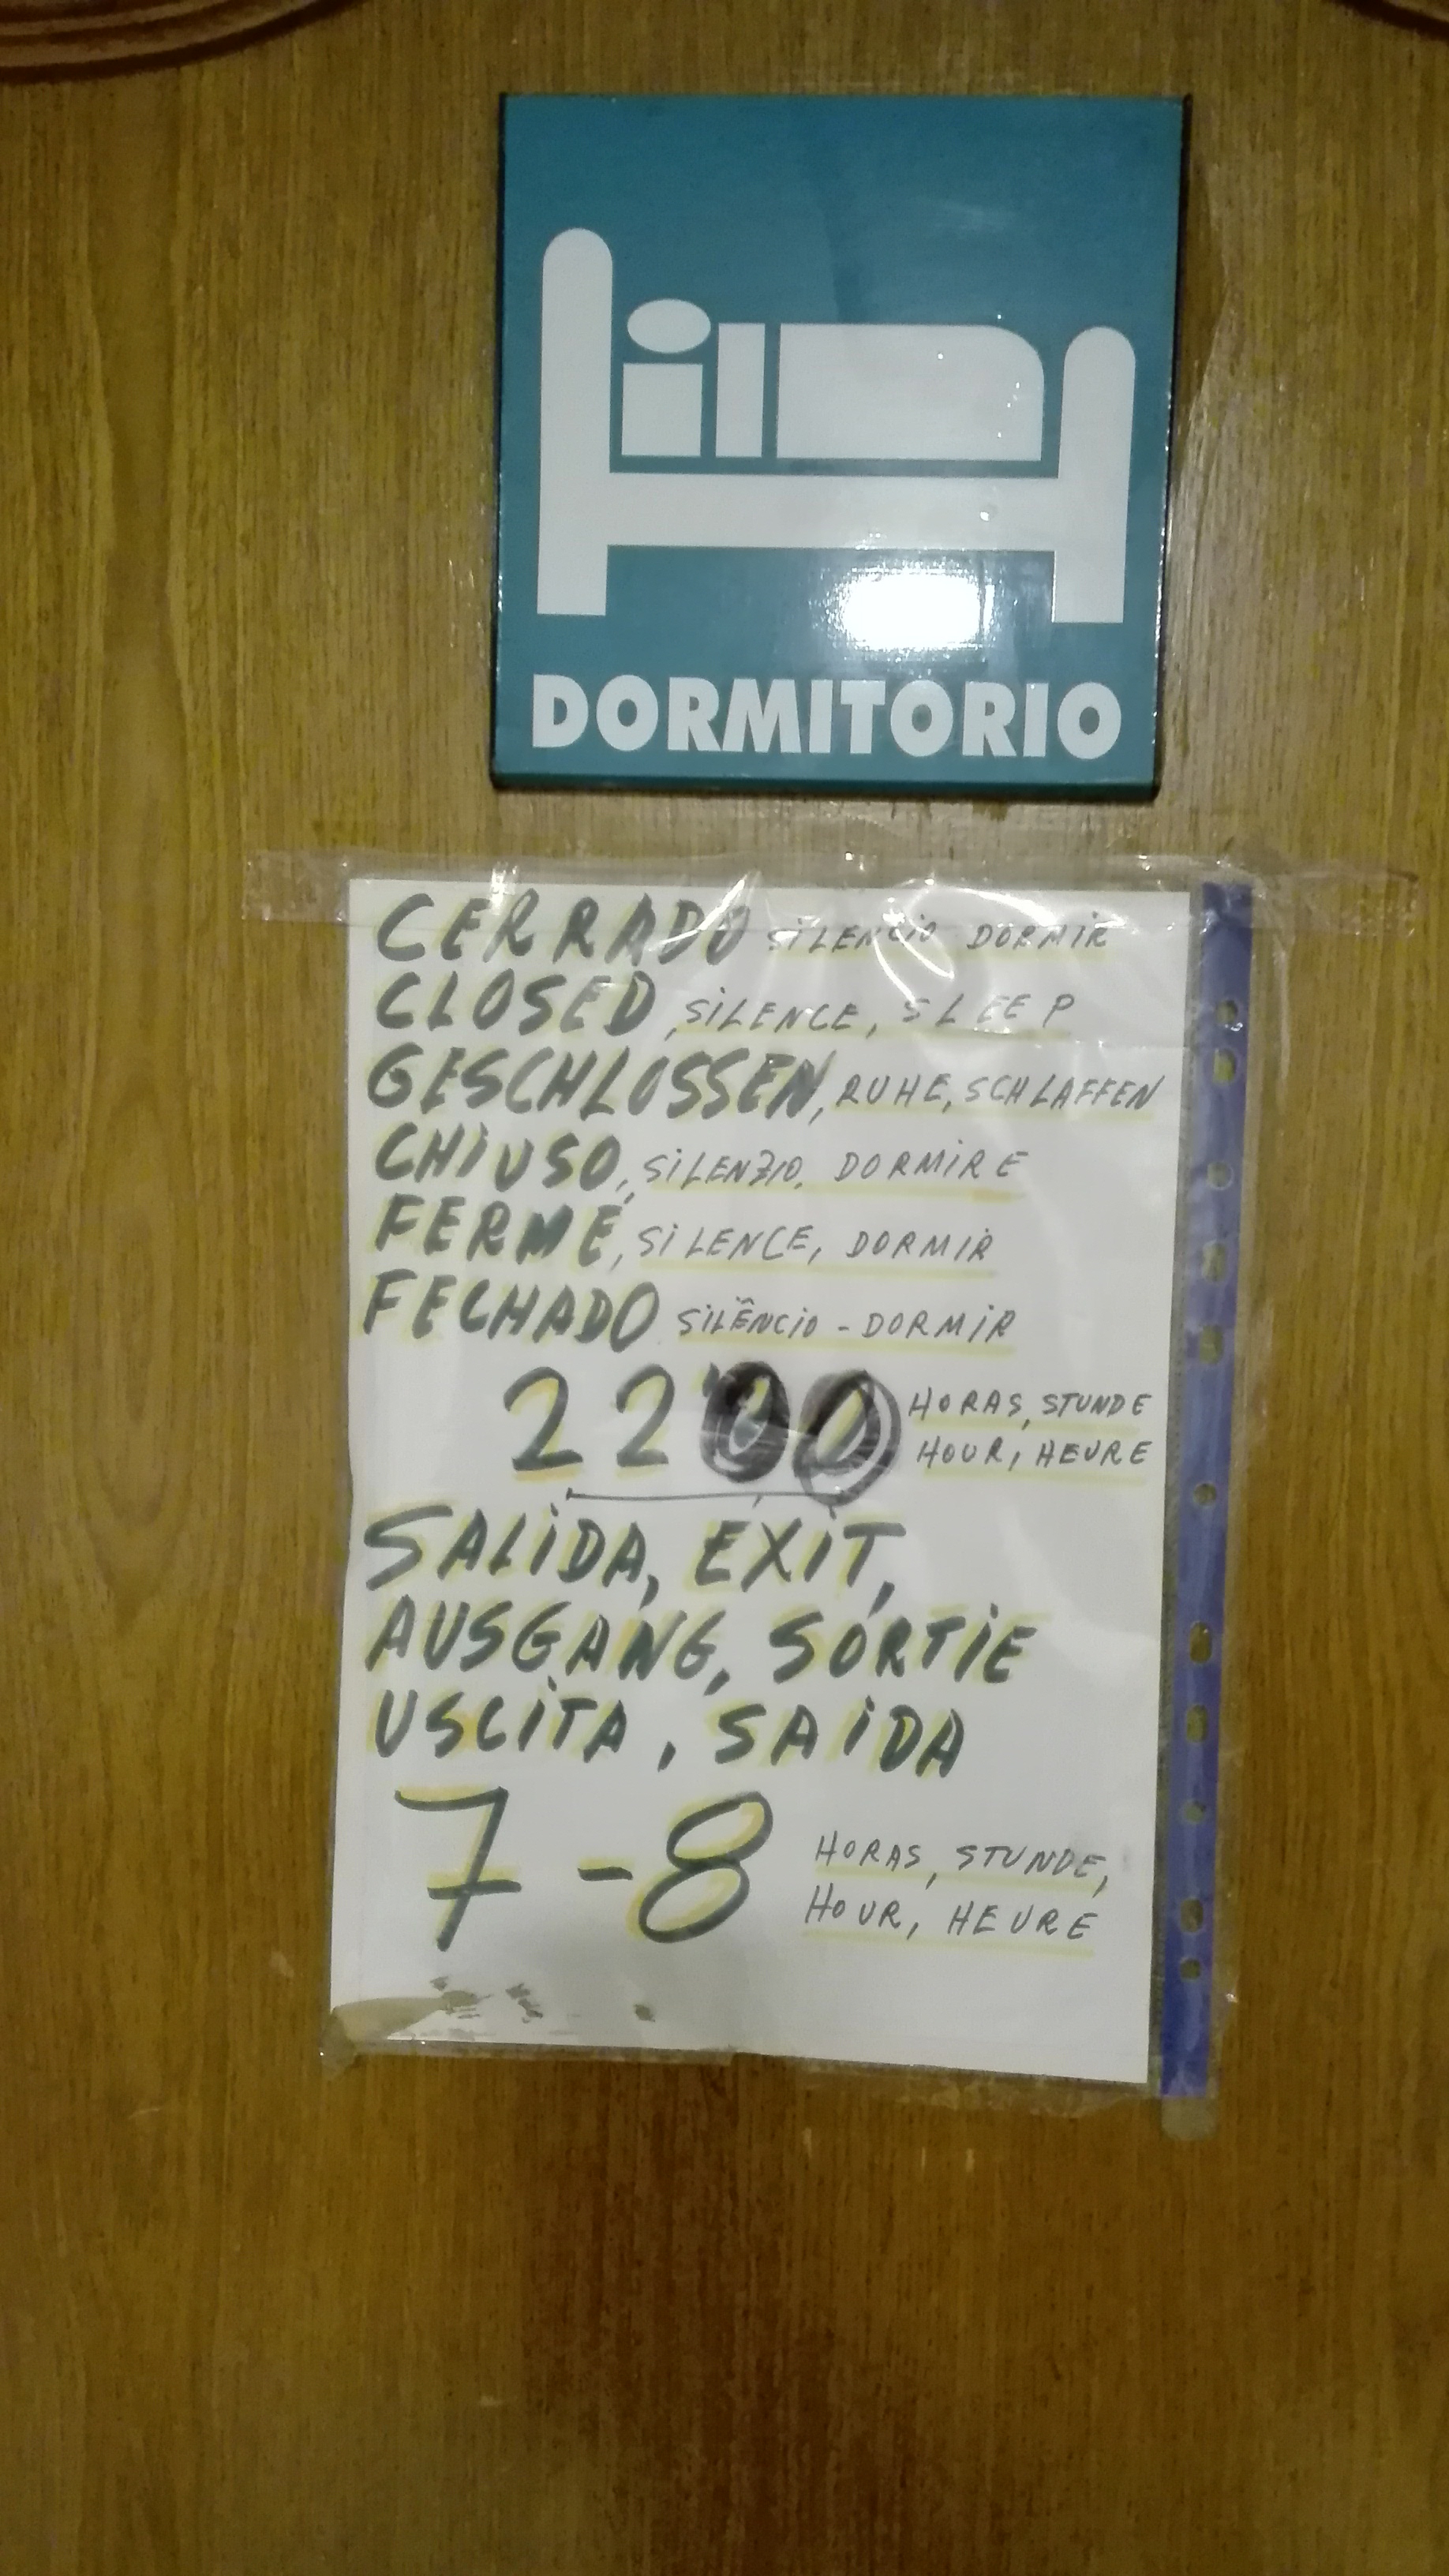 DORMITORIO
CERRADO SILENCIO DORMIR
CLOSED, SILENCE, SLEEP
GESCHLOSSEN, RUHE, SCHLAFFEN
CHIUSO, SILENZIO, DORMIRE
FERMÉ, SILENCE, DORMIR
FECHADO SILÊNCIO - DORMIR
22'00 HORAS, STUNDE
HOUR, HEURE
SALIDA, EXIT,
AUSGANG, SORTIE
USCITA, SAIDA
7-8 HORAS, STUNDE,
HOUR, HEURE